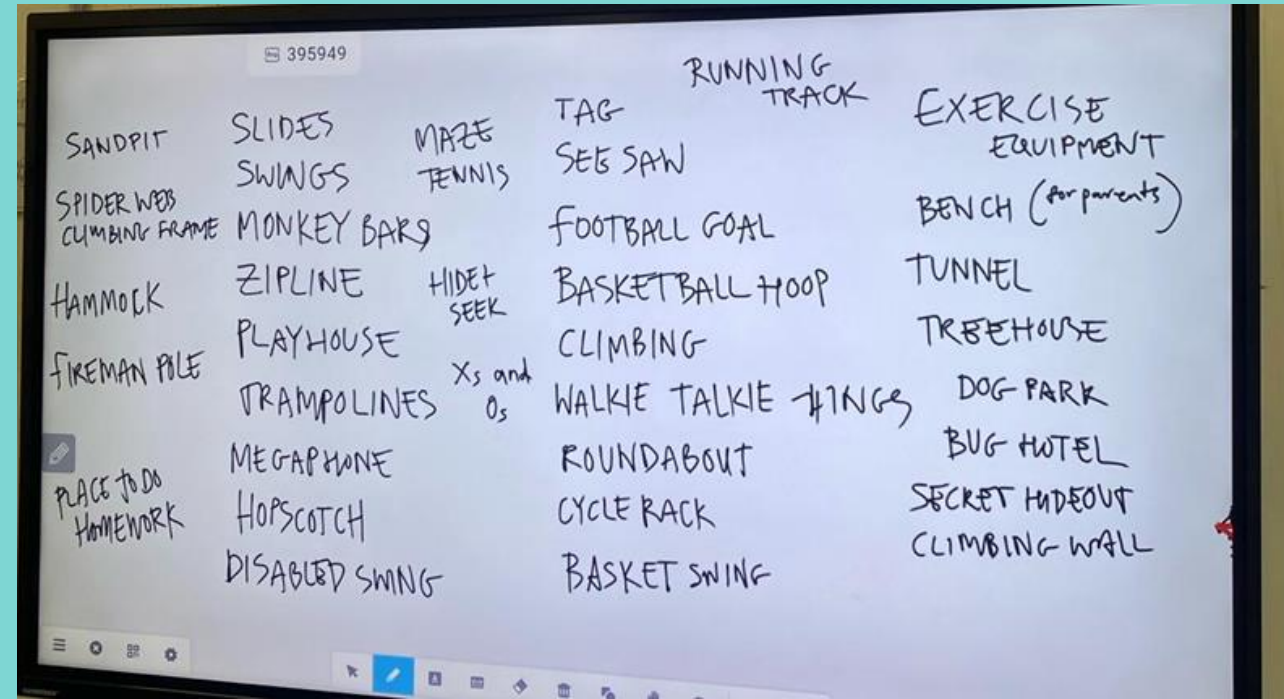 395949
SANDPIT
SPIDER WEB
CLIMBING FRAME
HAMMOCK
FIREMAN POLE
PLACE TO DO
HOMEWORK
SLIDES
SWINGS
MONKEY BARS
ZIPLINE
PLAYHOUSE
TRAMPOLINES
MEGAPHONE
HOPSCOTCH
DISABLED SWING
MAZE
TENNIS
HIDE+
SEEK
Xs and
Os
TAG
SEE SAW
FOOTBALL GOAL
BASKETBALL HOOP
CLIMBING
WALKIE TALKIE THINGS
ROUNDABOUT
CYCLE RACK
BASKET SWING
RUNNING
TRACK
EXERCISE
EQUIPMENT
BENCH (for parents)
TUNNEL
TREEHOUSE
DOG PARK
BUG HOTEL
SECRET HIDEOUT
CLIMBING WALL